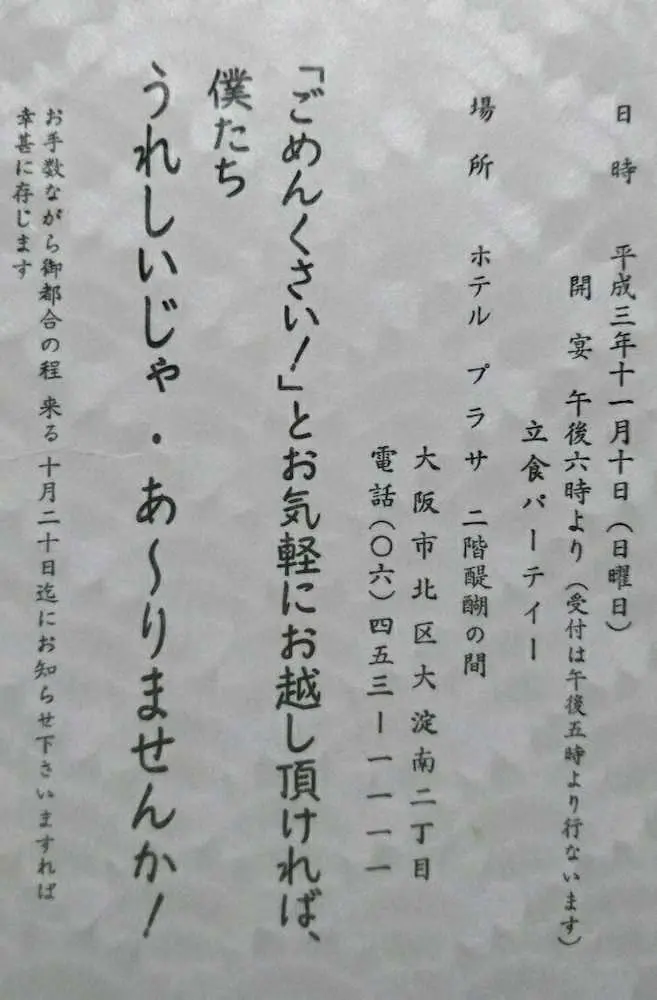 日時 平成三年十一月十日（日曜日）
開宴 午後六時より（受付は午後五時より行ないます）
立食パーティー
場所 ホテル プラザ 二階醍醐の間
大阪市北区大淀南二丁目
電話（〇六）四五三ー一一一一
「ごめんくさい！」とお気軽にお越し頂ければ、
僕たち
うれしいじゃ・あ〜りませんか！
お手数ながら御都合の程 来る 十月二十日迄にお知らせ下さいますれば
幸甚に存じます